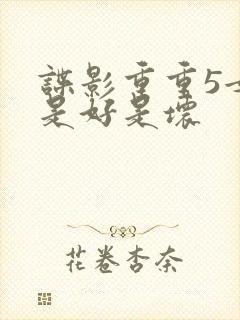 諜影重重5
是好是壞
花卷杏奈